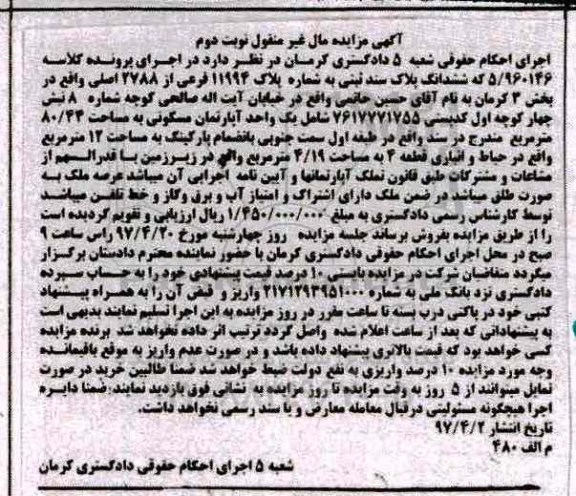 آگهی مزایده مال غیر منقول نوبت دوم
اجرای احکام حقوقی شعبه ۵ دادگستری کرمان در نظر دارد در اجرای پرونده کلاسه
۵/۹۶۰۱۴۶ که ششدانگ پلاک سند ثبتی به شماره پلاک ۱۱۹۹۴ فرعی از ۲۷۸۸ اصلی واقع در
بخش ۳ کرمان به نام آقای حسین حاتمی واقع در خیابان آیت اله صالحی کوچه شماره ۸ نبش
چهار کوچه اول کدپستی ۷۶۱۷۷۷۱۷۵۵ شامل یک واحد آپارتمان مسکونی به مساحت ۸۰/۴۴
مترمربع مندرج در سند واقع در طبقه اول سمت جنوبی بانضمام پارکینگ به مساحت ۱۲ مترمربع
واقع در حیاط و انباری قطعه ۴ به مساحت ۴/۱۹ مترمربع واقع در زیرزمین با قدرالسهم از
مشاعات و مشترکات طبق قانون تملک آپارتمانها و آیین نامه اجرایی آن میباشد عرصه ملک به
صورت طلق میباشد در ضمن ملک دارای اشتراک و امتیاز آب و برق وگاز و خط تلفن میباشد
توسط کارشناس رسمی دادگستری به مبلغ ۱/۴۵۰/۰۰۰/۰۰۰ ریال ارزیابی و تقویم گردیده است
را از طریق مزایده بفروش برساند جلسه مزایده روز چهارشنبه مورخ ۹۷/۴/۲۰ راس ساعت ۹
صبح در محل اجرای احکام حقوقی دادگستری کرمان با حضور نماینده محترم دادستان برگزار
میگردد متقاضیان شرکت در مزایده بایستی ۱۰ درصد قیمت پیشنهادی خود را به حساب سپرده
دادگستری نزد بانک ملی به شماره ۲۱۷۱۲۹۳۹۵۱۰۰۰ واریز و قبض آن را به همراه پیشنهاد
کتبی خود در پاکتی درب بسته تا ساعت مقرر در روز مزایده به این اجرا تسلیم نمایند بدیهی است
به پیشنهاداتی که بعد از ساعت اعلام شده واصل گردد ترتیب اثر داده نخواهد شد برنده مزایده
کسی خواهد بود که قیمت بالاتری پیشنهاد داده باشد و در صورت عدم واریز به موقع باقیمانده
وجه مورد مزایده ۱۰ درصد واریزی به نفع دولت ضبط خواهد شد ضمنا طالبین خرید در صورت
تمایل میتوانند از ۵ روز به وقت مزایده تا روز مزایده به نشانی فوق بازدید نمایند ضمنا دایره
اجرا هیچگونه مسئولیتی درقبال معامله معارض و یا سند رسمی نخواهد داشت.
تاریخ انتشار ۹۷/۴/۲
م الف ۴۸۰
شعبه ۵ اجرای احکام حقوقی دادگستری کرمان